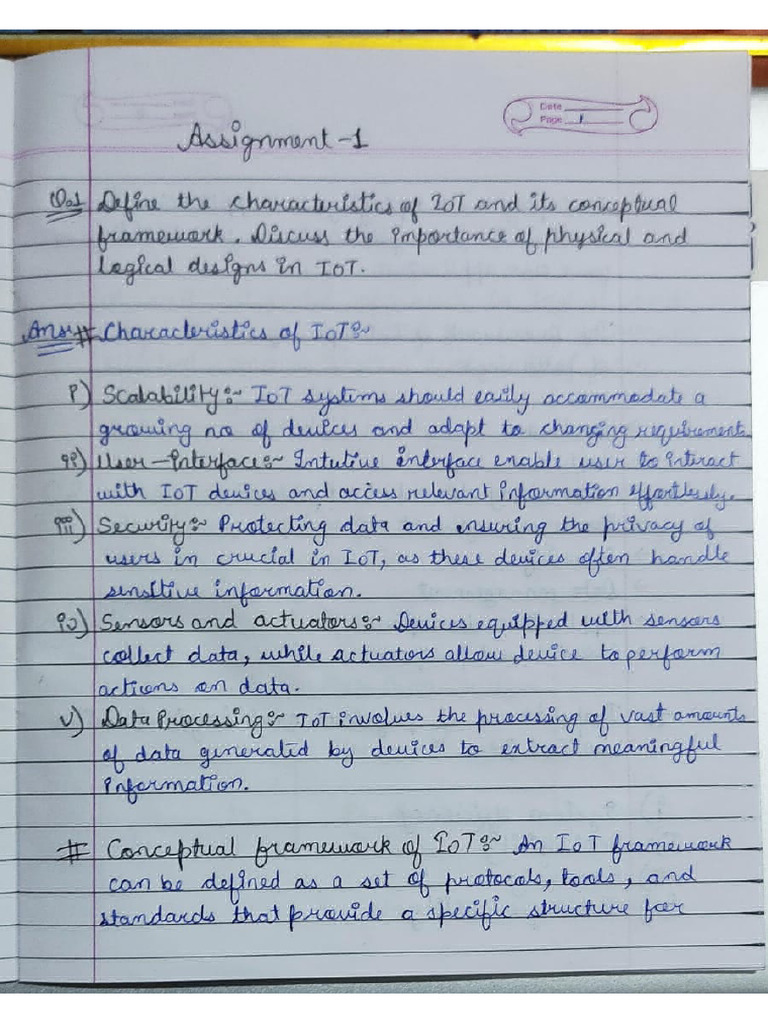 Date
Page 1
Assignment-1
Q.1 Define the characteristics of IoT and its conceptual
framework. Discuss the importance of physical and
Logical designs in IoT.
Ans:- # Characteristics of IoT:~
i) Scalability:~ IoT systems should easily accommodate a
growing no of devices and adapt to changing requirements
ii) User-Interface:~ Intutive interface enable user to interact
with IoT devices and access relevant information effortlessly.
iii) Security:~ Protecting data and ensuring the privacy of
users in crucial in IoT, as these devices often handle
sensitive information.
iv) Sensors and actuators:~ Devices equipped with sensors
collect data, while actuators allow device to perform
actions on data.
v) Data Processing:~ IoT involves the processing of vast amounts
of data generated by devices to extract meaningful
information.
# Conceptual framework of IoT:~ An IoT framework
can be defined as a set of protocols, tools, and
standards that provide a specific structure for